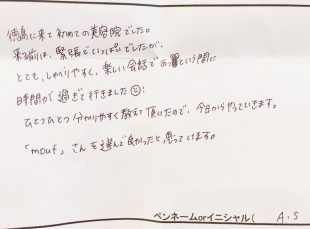 徳島に来て初めての美容院でした。
来る前は、緊張でいっぱいでしたが、
とても、しゃべりやすく、楽しい会話であっという間に
時間が過ぎて行きました
ひとつひとつ分かりやすく教えて頂いたので、今日からやっていきます。
「mouf」さんを選んで良かったと思っています。
ペンネームorイニシャル( A.S